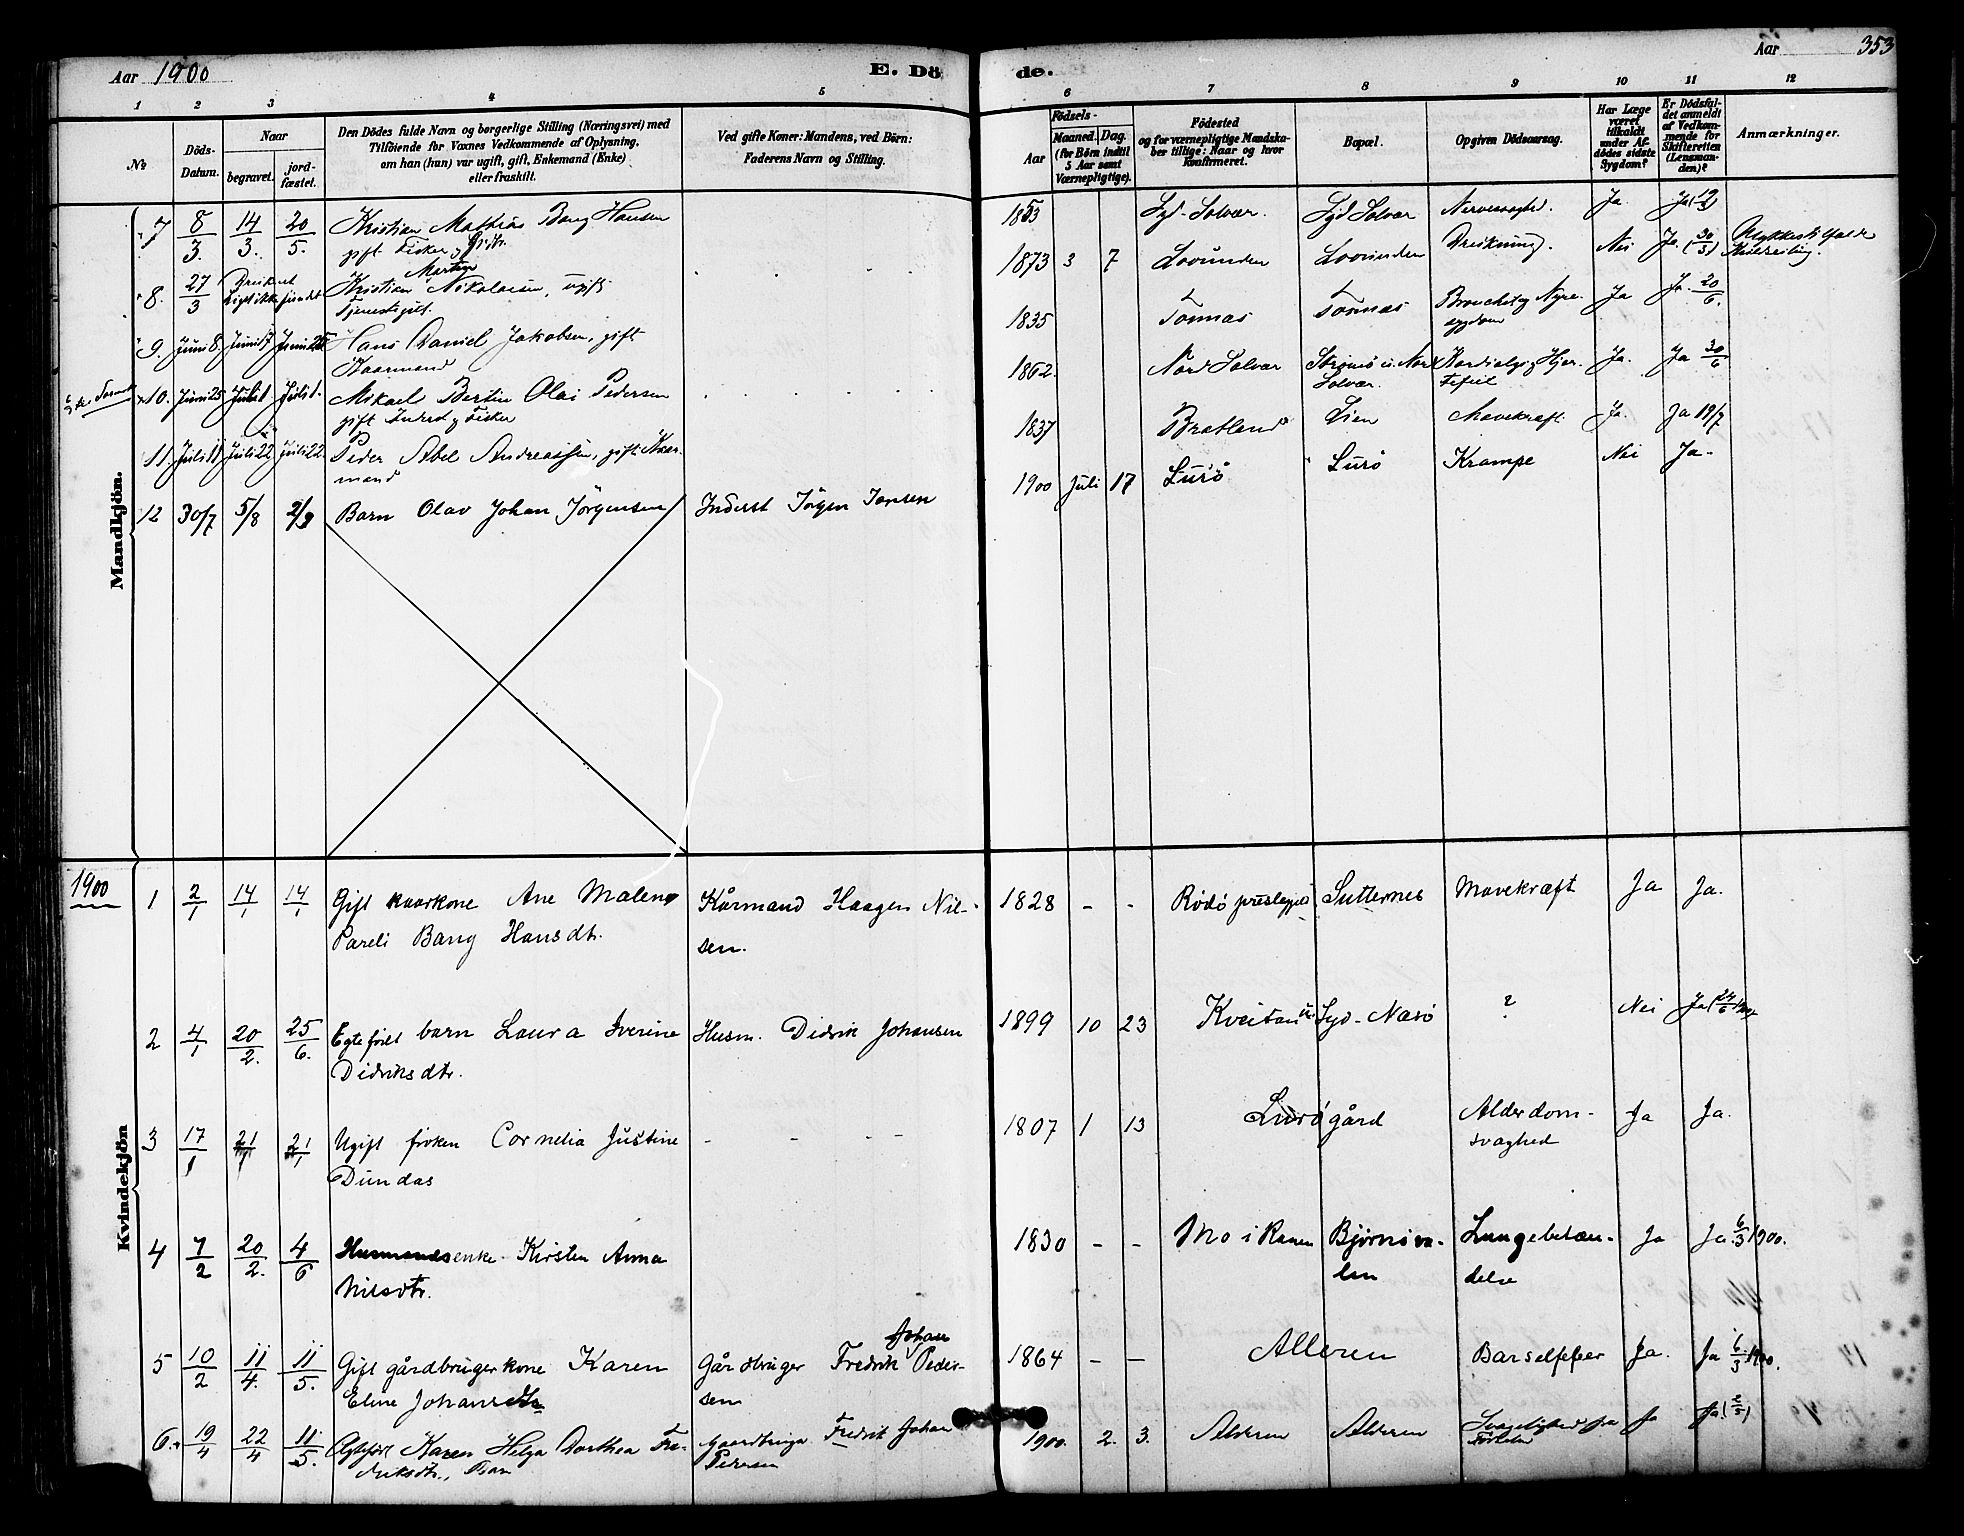 Aar 1900
E. Dö
de.
Aar
353
1 2 3 4 5 6 7 8 9 10 11 12
№
Döds-
Datum.
Naar
begravet.
jord-
fæstet.
Den Dödes fulde Navn og borgerlige Stilling (Næringsvei) med
Tilföiende for Voxnes Vedkommende af Oplysning,
om han (hun) var ugift, gift, Enkemand (Enke)
eller fraskilt.
Ved gifte Koner: Mandens, ved Börn:
Faderens Navn og Stilling.
Födsels-
Aar
Maaned. Dag.
(for Börn indtil
5 Aar samt
Værnepligtige).
Födested
og for værnepligtige Mandska-
ber tillige: Naar og hvor
konfirmeret.
Bopæl.
Opgiven Dödsaarsag.
Har Læge
været
tilkaldt
under Af-
dödes sidste
Sygdom?
Er Dödsfal-
det anmeldt
af Vedkom-
mende for
Skifteretten
(Lensman-
den)?
Anmærkninger.
Mandkjön.
7 8/3. 14/3. 20/5. Kristian Mathias Bang Hansen 1853 Syd-Solvær. Syd Solvær Ja
gift Fisker
8. 27/3 ikke fundet Kristian Martin Nikolaisen, ugift 1873 3 7 Lovunden Lovunden Drukning. Nei Ja (30/3)
Tjenestegut.
9. Juni 8. Juni 17 Juni 25 Hans Daniel Jakobsen, gift 1835 Tonnæs Tonnæs Ja Ja 20/6.
Kaarmand
10. Juni 25 Juli 1 Juli 1. Mikael Bertin Olai Pedersen 1862. Nord Solvær Solvær Ja. Ja 30/6
gift Inderst og Fisker
11. Juli 11 Juli 22 Juli 22. Peder Abel Andreassen, gift Kaar- 1837 Bratland Lien Mavekræft Ja. Ja 19/7
mand
12 30/7 5/8 2/9 Barn Olav Johan Jörgensen Inderst Jörgen Jensen 1900 Juli 17 Lurö Lurö Krampe Nei Ja.
Kvindekjön
1900
1 2/1 14/1 14/1 Gift kaarkone Ane Malena Kårmand Haagen Nil- 1828 - - Rödö Sutternes Mavekræft Ja Ja.
Pareli Bang Hansdtr. sen.
2 4/1 20/2. 25/6. Egtefödt barn Laura Iverine Husm. Didrik Johansen 1899 10 23 Kveitan u. Syd-Næsö ? Nei Ja
Didriksdtr.
3 17/1 21/1 21/1 Ugift fröken Cornelia Justine - - - - 1807 1 13 Lurögård Alderdom- Ja Ja.
Dundas svaghed
4 7/2 20/2. 4/6 Husmandsenke Kirsten Anna 1830 - - Mo i Ranen Bjørnsva- Lungebetæn- Ja Ja. 6/3 1900.
Nilsdtr. len delse
5 10/2 11/4. 11/5. Gift gårdbrugerkone Karen Gårdbruger Fredrik Johan Peder- 1864 - - Alderen Barselfeber Ja. Ja 6/3 1900.
Eline Johansdtr sen
6. 19/4 22/4 11/5. Karen Helga Dorthea Fre- Gaardbruger Fredrik Johan 1900. 2. 3. Alderen Alderen Svagelighed fra Ja Ja. (2/5)
driksdtr., Barn Pedersen Födselen